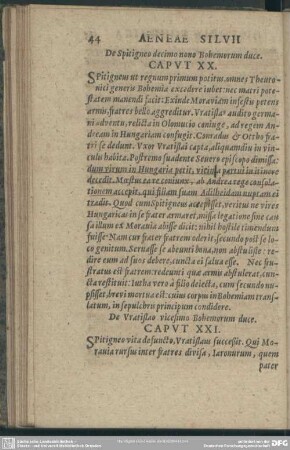 44 AENEAE SILVII
De Spitigneo decimo nono Bohemorum duce.
CAPVT XX.
SPitigneus ut regnum primum potitus, omnes Theuto-
nici generis Bohemia excedere iubet: nec macri pote-
statem manendi facit: Exinde Moraviam infestus petens
armis, fratres bello aggreditur. Vratislaus audito germa-
ni adventu, relicta in Olomucio coniuge, ad regem An-
dream in Hungariam confugit. Conradus & Ortho fra-
tri se dedunt. Vxor Vratislai capta, aliquamdiu in vin-
culis habita. Postremo suadente Severo episcopo dimissa:
dum virum in Hungaria petit, vitium partui in itinere
decedit. Mœstus ea re coniunx, ab Andrea rege consula-
tionem accepit, qui filiam suam Adilheidam nuptam ei
tradit. Quod cum Spitigneus accepisset, veritus ne vires
Hungaricas in se frater armaret, missa legatione sine cau-
sa illum ex Moravia abisse dicit: nihil hostile timendum
fuisse. Nam cur frater fratrem oderit, secundo post se lo-
co genitum. Servasse se abeunti bona, non abstulisse: re-
dire eum ad suos debere, cuncta ei salva esse. Nec fru-
stratus est fratrem: redeunti quæ armis abstulerat, cun-
cta restituit: Iutha vero à filio deiecta, cum secundo nu-
psisset, brevi mortua est: cuius corpus in Bohemiam trans-
latum, in sepulchro principum condidere.
De Vratislao vicesimo Bohemorum duce.
CAPVT XXI.
SPitigneo vita defuncto, Vratislaus successit. Qui Mo-
ravia rursus inter fratres divisa, Iaromirum, quem
pater